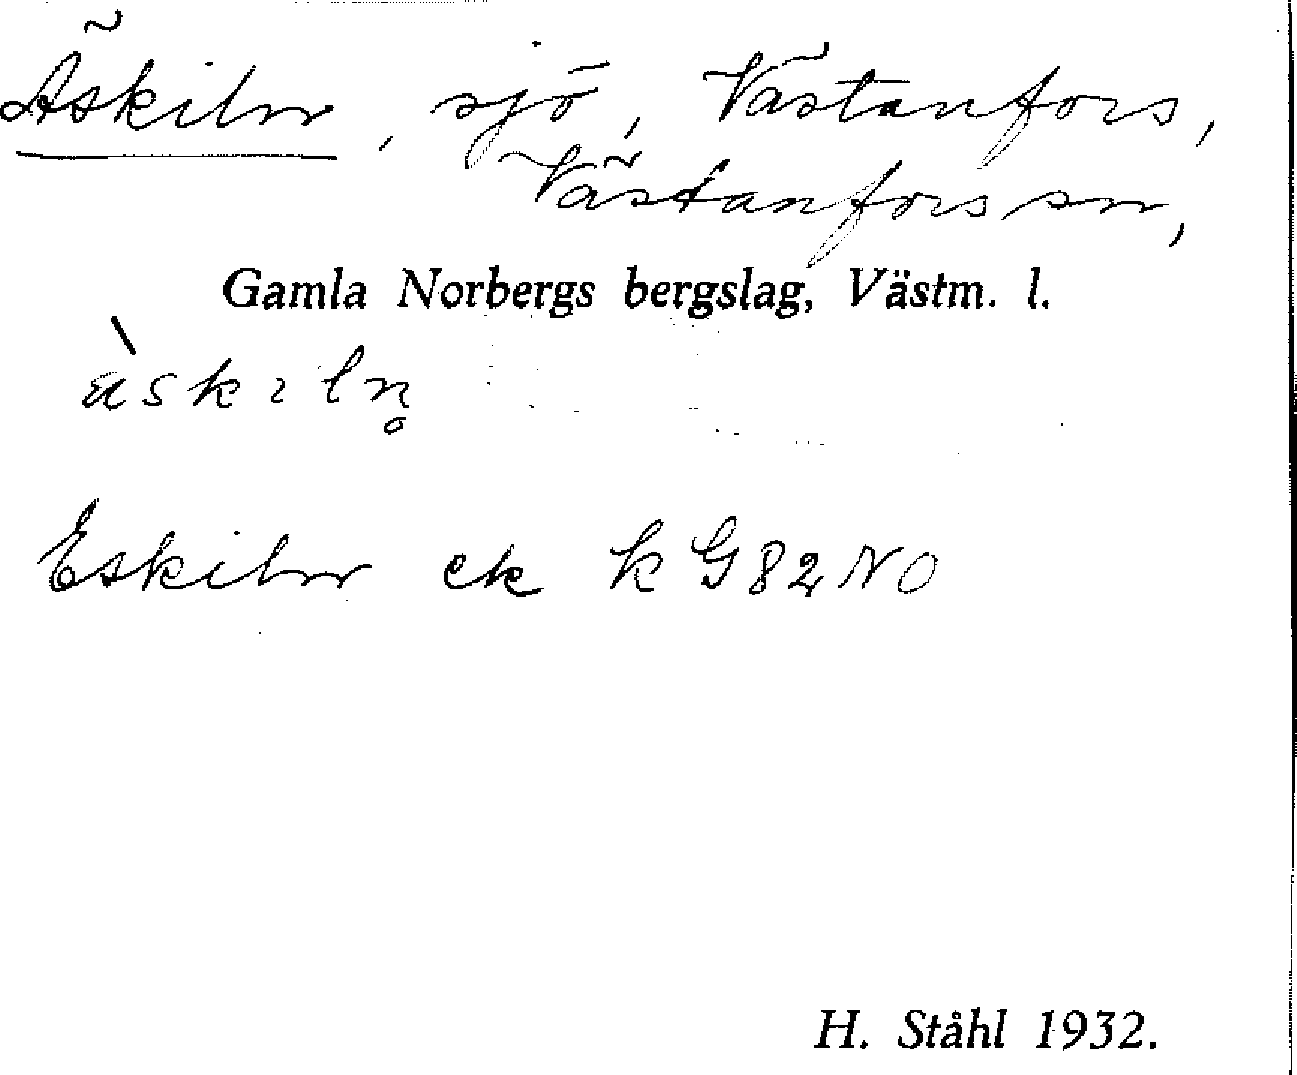 Äskiln, sjö, Västanfors,
Västanfors sn,
Gamla Norbergs bergslag, Västm. l.
Eskiln ek k G82NO
H. Ståhl 1932.